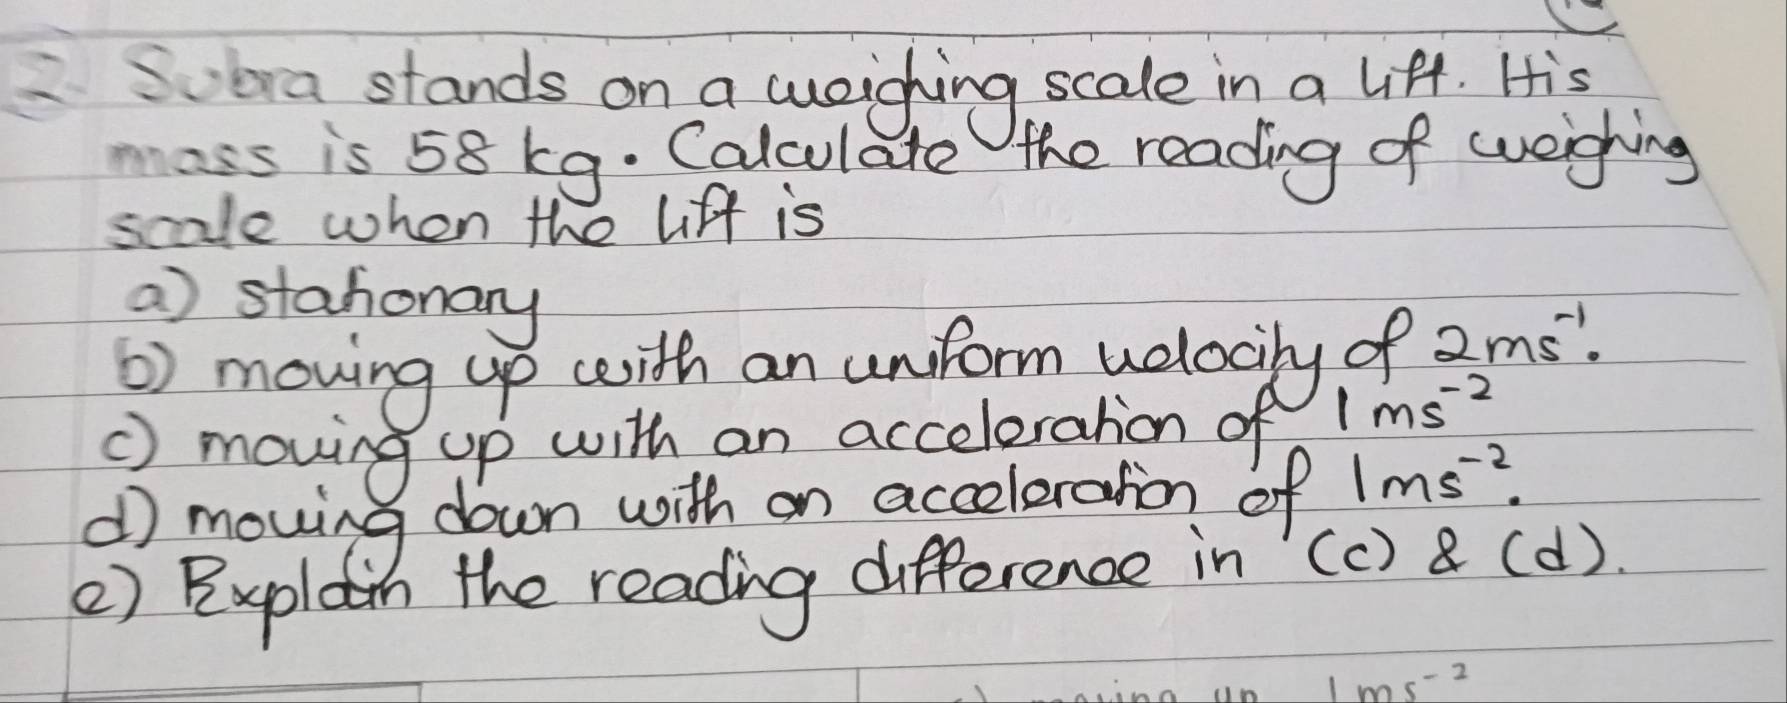 2. Subra stands on a weighing scale in a lift. His
mass is 58 kg. Calculate the reading of weighing
scale when the lift is
a) stationary
b) moving up with an uniform velocity of 2ms⁻¹.
c) moving up with an acceleration of 1ms⁻²
d) moving down with an acceleration of 1ms⁻².
e) Explain the reading difference in (c) & (d).
moving up 1ms⁻²